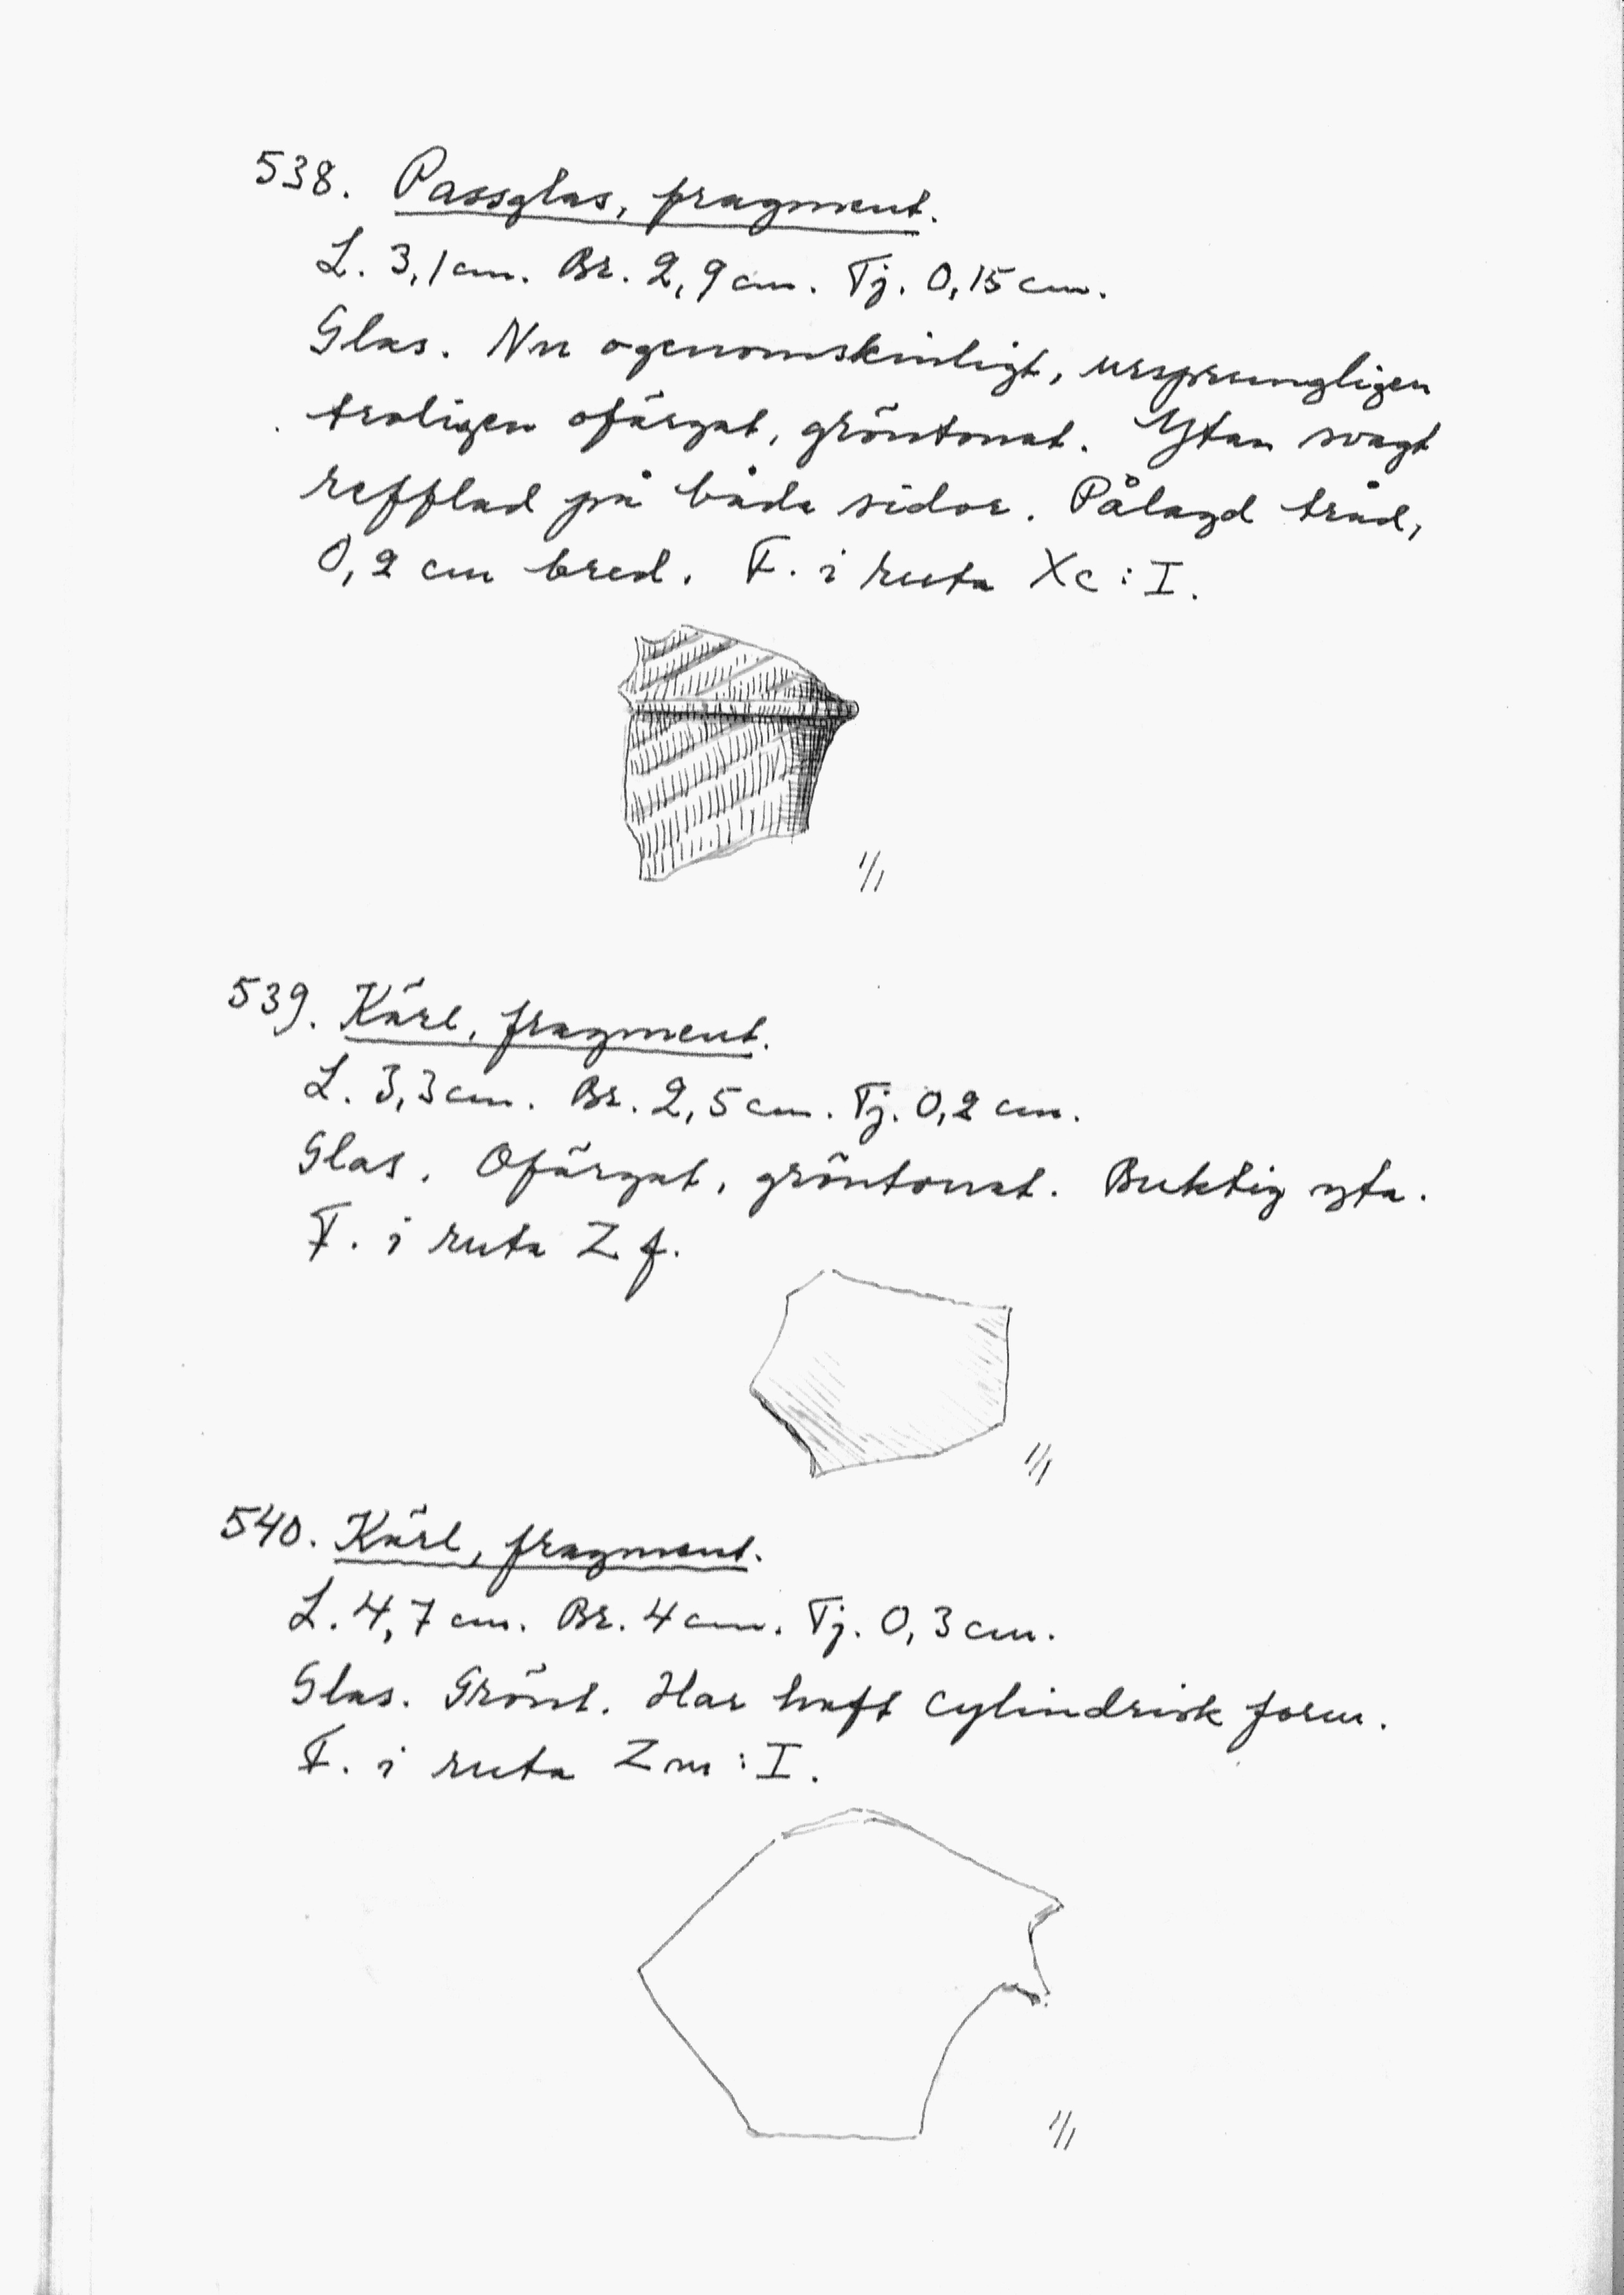 538. Passglas, fragment.
L. 3,1 cm. Br. 2,9 cm. Tj. 0,15 cm.
Glas. Nu ogenomskinligt, ursprungligen
troligen ofärgat, gröntonat. Ytan svagt
refflad på båda sidor. Pålagd tråd,
0,2 cm bred. F. i ruta Xc:I.
1/1
539. Kärl, fragment.
L. 3,3 cm. Br. 2,5 cm. Tj. 0,2 cm.
Glas. Ofärgat, gröntonat. Buktig yta.
F. i ruta Zf.
1/1
540. Kärl, fragment.
L. 4,7 cm. Br. 4 cm. Tj. 0,3 cm.
Glas. Grönt. Har haft cylindrisk form.
F. i ruta Zm:I.
1/1